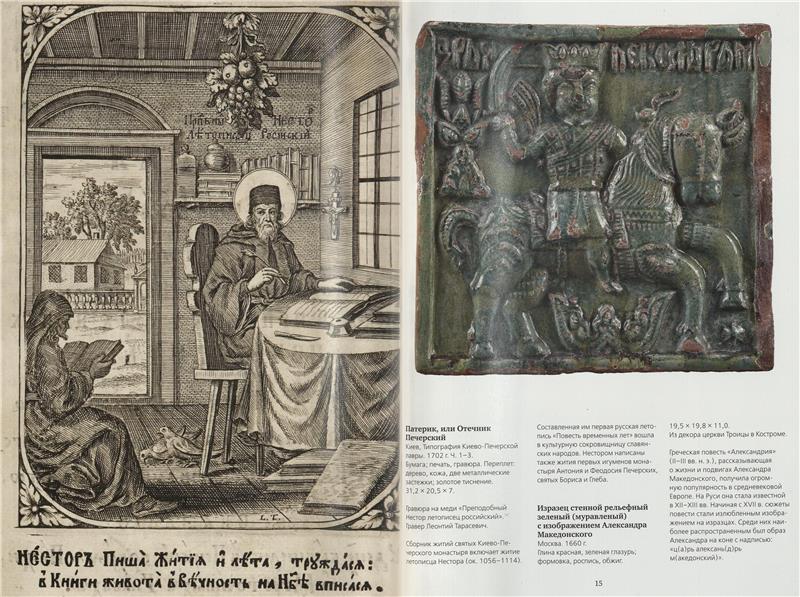 Прпбны Несто
Лѣтописец Росискїй
L. T.
НЕ́СТОРЪ Пиша̀ Жи́тїѧ и҆ лѣ́та, трꙋжда́сѧ:
в̾ Кни́ги живота̀ в̾ Вѣ́чность на Нб҃ѣ вписа́сѧ.
ЦРЬ АЛЕКСАНДРЪ М
Патерик, или Отечник
Печерский
Киев, Типография Киево-Печерской
лавры. 1702 г. Ч. 1–3.
Бумага; печать, гравюра. Переплет:
дерево, кожа, две металлические
застежки; золотое тиснение.
31,2 × 20,5 × 7.
Гравюра на меди «Преподобный
Нестор летописец российский».
Гравер Леонтий Тарасевич.
Сборник житий святых Киево-Пе-
черского монастыря включает житие
летописца Нестора (ок. 1056–1114).
Составленная им первая русская лето-
пись «Повесть временных лет» вошла
в культурную сокровищницу славян-
ских народов. Нестором написаны
также жития первых игуменов мона-
стыря Антония и Феодосия Печерских,
святых Бориса и Глеба.
Изразец стенной рельефный
зеленый (муравленый)
с изображением Александра
Македонского
Москва. 1660 г.
Глина красная, зеленая глазурь;
формовка, роспись, обжиг.
19,5 × 19,8 × 11,0.
Из декора церкви Троицы в Костроме.
Греческая повесть «Александрия»
(II–III вв. н. э.), рассказывающая
о жизни и подвигах Александра
Македонского, получила огром-
ную популярность в средневековой
Европе. На Руси она стала известной
в XII–XIII вв. Начиная с XVII в. сюжеты
повести стали излюбленным изобра-
жением на изразцах. Среди них наи-
более распространенным был образ
Александра на коне с надписью:
«ц(а)рь алексань(д)рь
м(акедонский)».
15